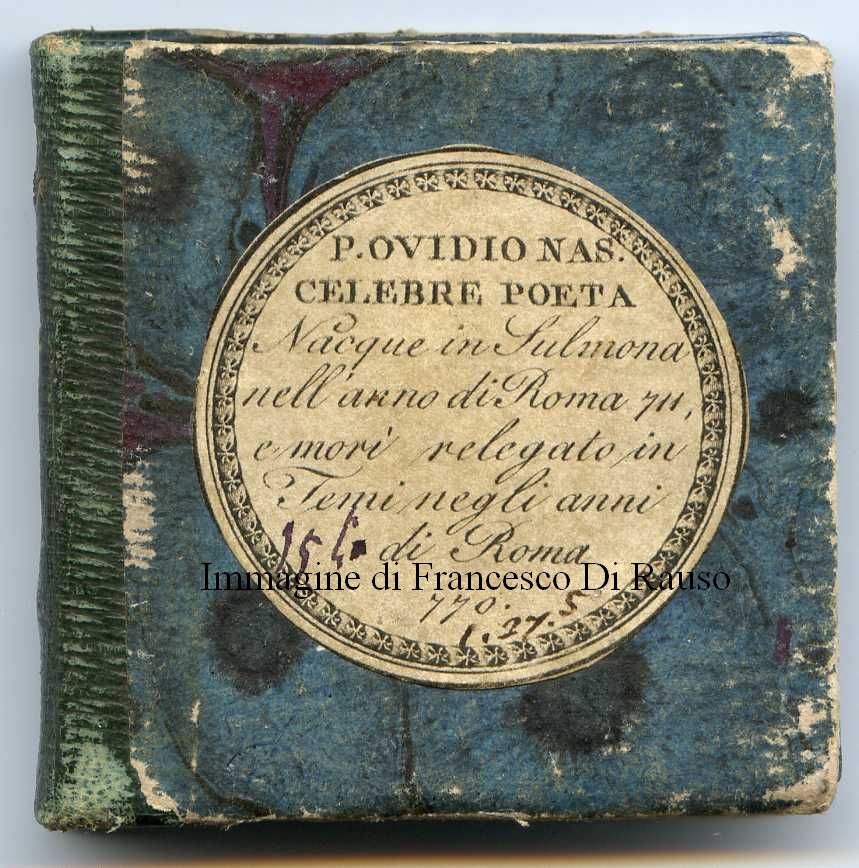 P. OVIDIO NAS.
CELEBRE POETA
Nacque in Sulmona
nell'anno di Roma 711,
e morì relegato in
Temi negli anni
di Roma
Immagine di Francesco Di Rauso
770.